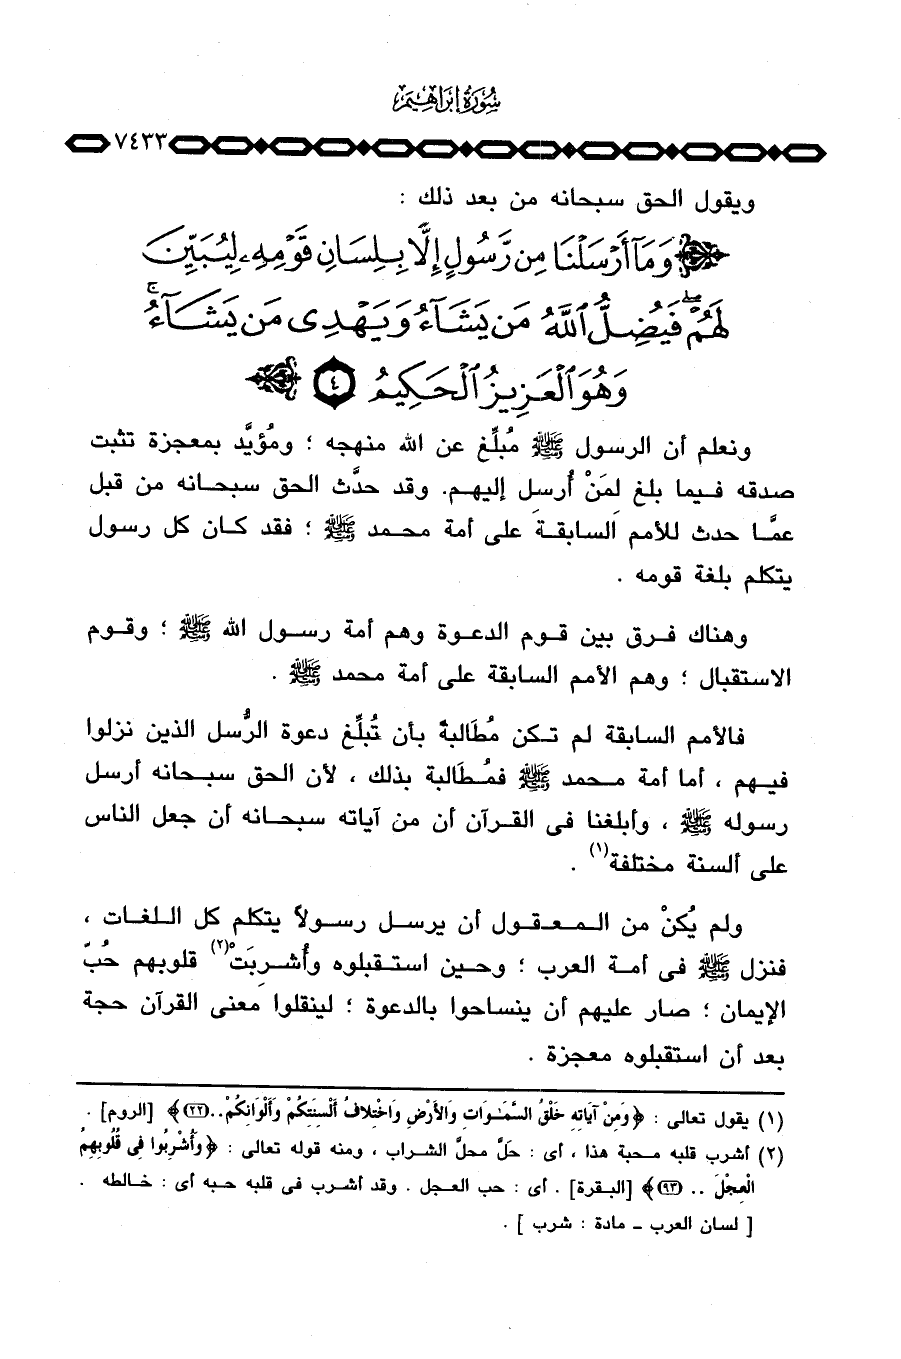 سورة إبراهيم
٧٤٣٣
ويقول الحق سبحانه من بعد ذلك :
﴿ وَمَآ أَرْسَلْنَا مِن رَّسُولٍ إِلَّا بِلِسَانِ قَوْمِهِۦ لِيُبَيِّنَ
لَهُمْ ۖ فَيُضِلُّ ٱللَّهُ مَن يَشَآءُ وَيَهْدِى مَن يَشَآءُ ۚ
وَهُوَ ٱلْعَزِيزُ ٱلْحَكِيمُ ٤ ﴾
ونعلم أن الرسول ﷺ مُبلِّغ عن الله منهجه ؛ ومُؤيَّد بمعجزة تثبت
صدقه فيما بلغ لمَنْ أُرسِل إليهم. وقد حدَّث الحق سبحانه من قبل
عمَّا حدث للأمم السابقة على أمة محمد ﷺ ؛ فقد كان كل رسول
يتكلم بلغة قومه .
وهناك فرق بين قوم الدعوة وهم أمة رسول الله ﷺ ؛ وقوم
الاستقبال ؛ وهم الأمم السابقة على أمة محمد ﷺ .
فالأمم السابقة لم تكن مُطَالبةً بأن تُبلِّغ دعوة الرُّسل الذين نزلوا
فيهم ، أما أمة محمد ﷺ فمُطَالبة بذلك ، لأن الحق سبحانه أرسل
رسوله ﷺ ، وأبلغنا فى القرآن أن من آياته سبحانه أن جعل الناس
على ألسنة مختلفة(١) .
ولم يكُنْ من المعقول أن يرسل رسولاً يتكلم كل اللغات ،
فنزل ﷺ فى أمة العرب ؛ وحين استقبلوه وأُشربَتْ(٢) قلوبهم حُبّ
الإيمان ؛ صار عليهم أن ينساحوا بالدعوة ؛ لينقلوا معنى القرآن حجة
بعد أن استقبلوه معجزة .
(١) يقول تعالى : ﴿ وَمِنْ آيَاتِهِ خَلْقُ السَّمَٰوَاتِ وَالأَرْضِ وَاخْتِلافُ أَلْسِنَتِكُمْ وَأَلْوَانِكُمْ..(٢٢)﴾ [الروم] .
(٢) أشرب قلبه محبة هذا ، أى : حَلَّ محلَّ الشراب ، ومنه قوله تعالى : ﴿ وَأُشْرِبُوا فِي قُلُوبِهِمُ
الْعِجْلَ .. (٩٣)﴾ [البقرة] . أى : حب العجل . وقد أشرب فى قلبه حبه أى : خالطه .
[ لسان العرب - مادة : شرب ] .